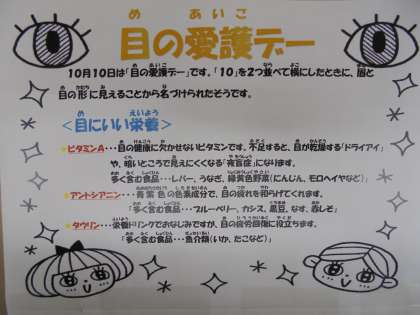 目の愛護デー
10月10日は「目の愛護デー」です。「10」を2つ並べて横にしたときに、眉と
目の形に見えることから名づけられたそうです。
<目にいい栄養>
ビタミンA・・・目の健康に欠かせないビタミンです。不足すると、目が乾燥する「ドライアイ」
や、暗いところで見えにくくなる「夜盲症」になります。
多く含む食品…レバー、うなぎ、緑黄色野菜(にんじん、モロヘイヤなど)
アントシアニン・・・青紫色の色素成分で、目の疲れを和らげてくれます。
「多く含む食品…ブルーベリー、カシス、黒豆、なす、赤しそ」
タウリン・・・栄養ドリンクでおなじみですが、目の疲労回復に役立ちます。
「多く含む食品…魚介類(いか、たこなど)」